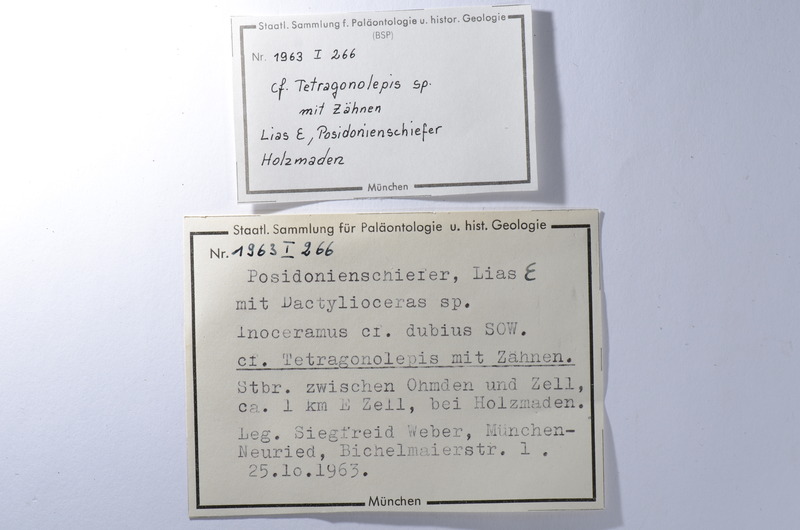 Staatl. Sammlung f. Paläontologie u. histor. Geologie
(BSP)
Nr. 1963 I 266
cf. Tetragonolepis sp.
mit Zähnen
Lias ε, Posidonienschiefer
Holzmaden
München
Staatl. Sammlung für Paläontologie u. hist. Geologie
Nr. 1963 I 266
Posidonienschiefer, Lias ε
mit Dactylioceras sp.
Inoceramus cf. dubius SOW.
cf. Tetragonolepis mit Zähnen.
Stbr. zwischen Ohmden und Zell,
ca. 1 km E Zell, bei Holzmaden.
Leg. Siegfreid Weber, München-
Neuried, Bichelmaierstr. 1 .
25.10.1963.
München